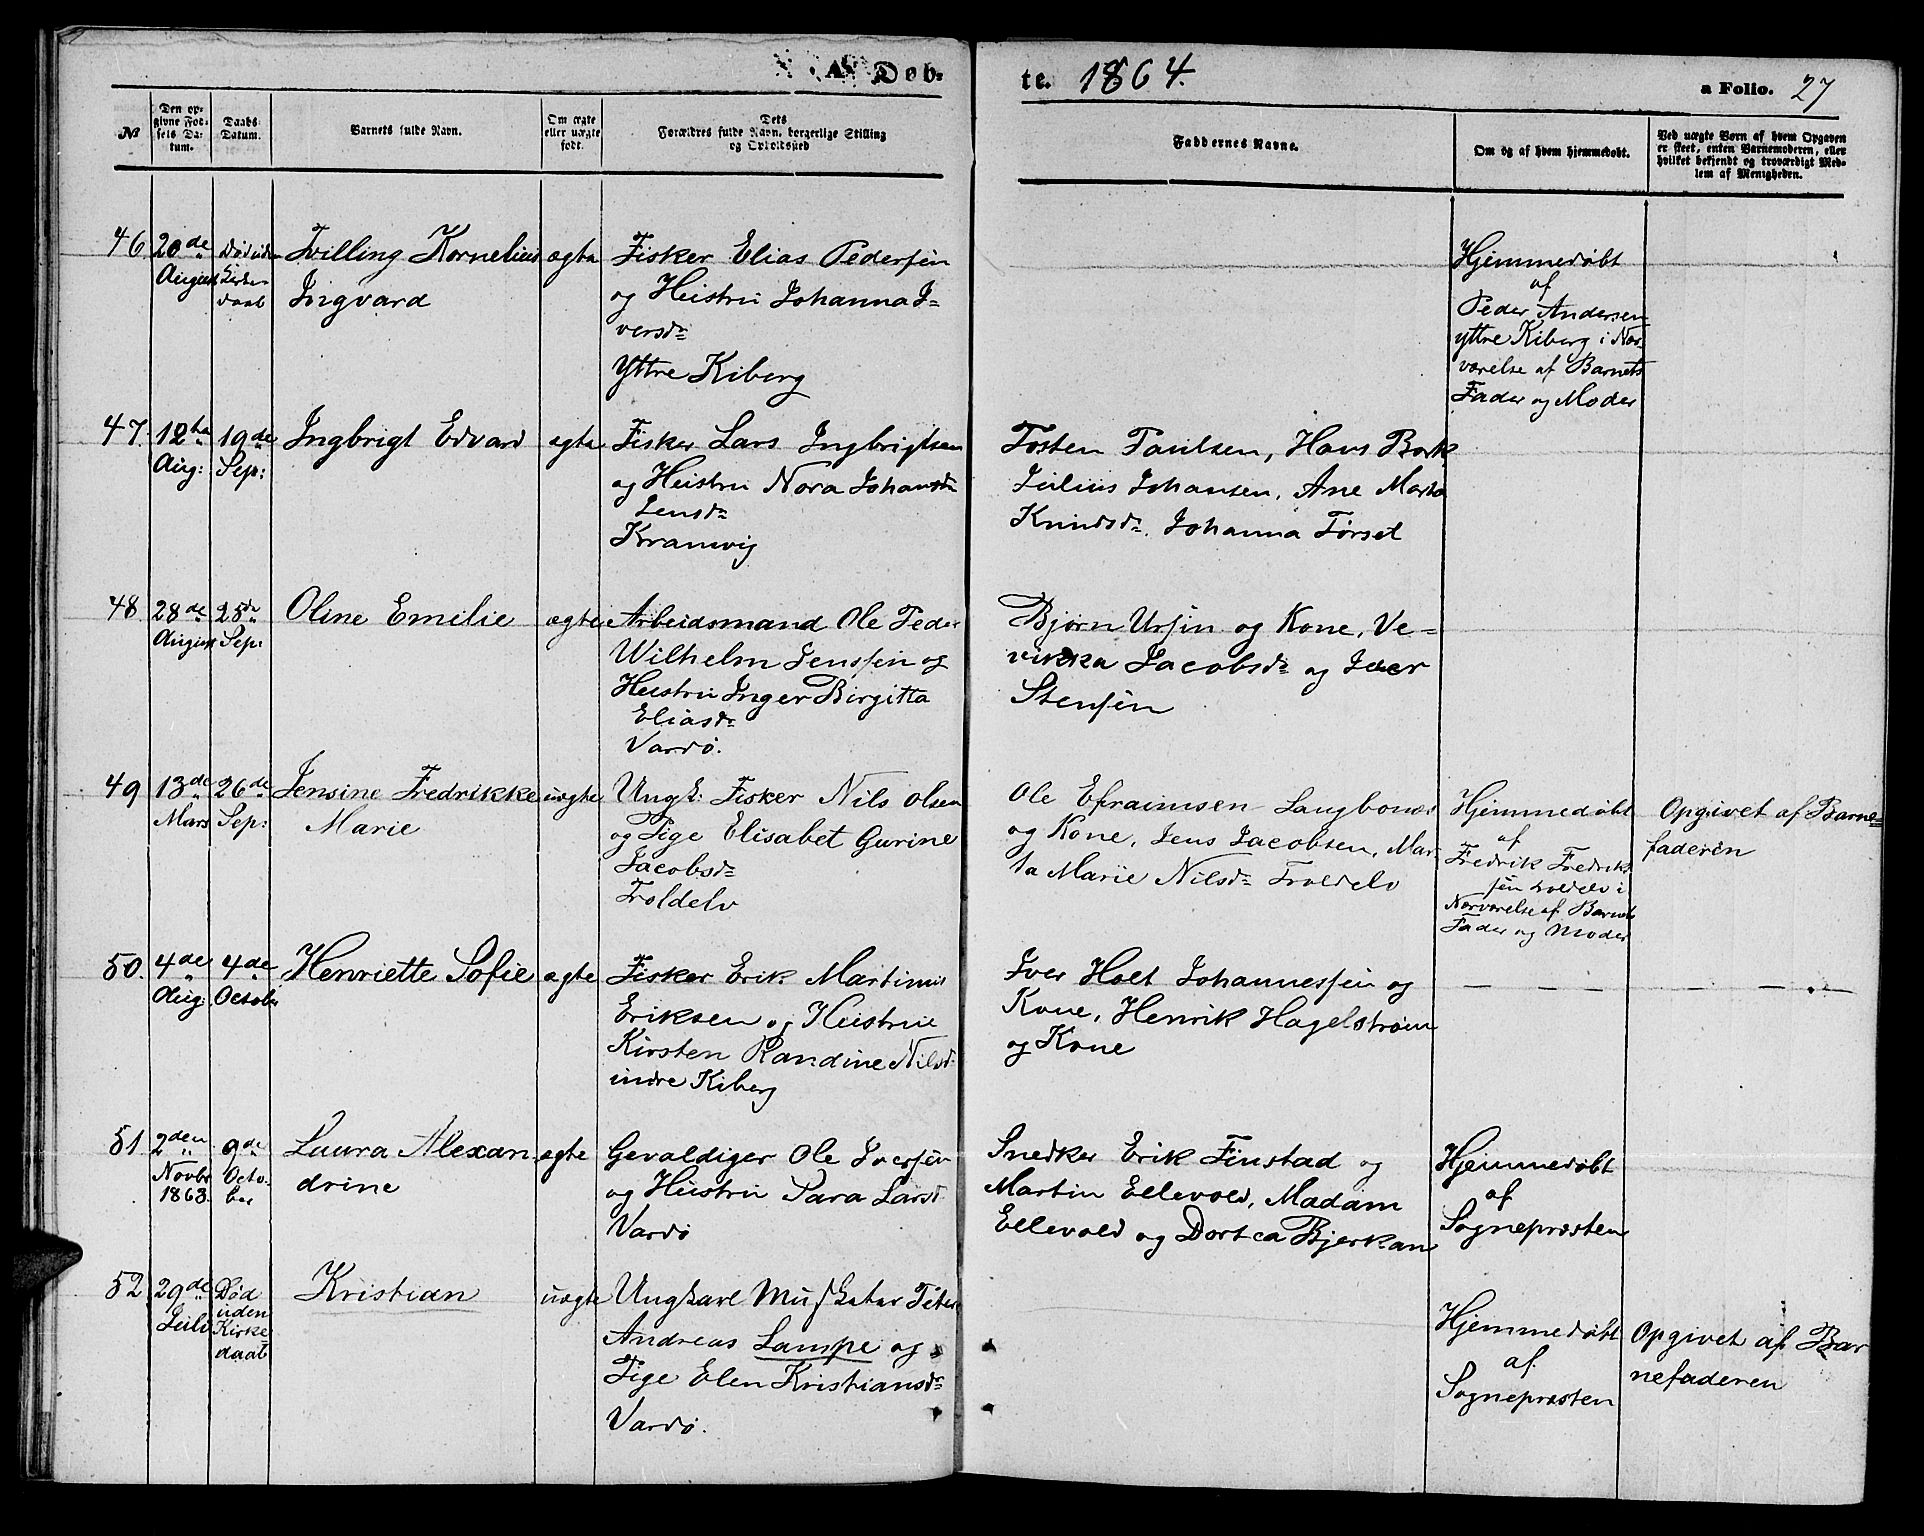 A. Døb-
te. 1864.
a Folio. 27
№
Den op-
givne Fød-
sels Da-
tum.
Daabs-
Datum.
Barnets fulde Navn.
Om ægte
eller uægte
født.
Dets
Forældres fulde Navn, borgerlige Stilling
og Opholdssted
Faddernes Navne.
Om og af hvem hjemmedøbt.
Ved uægte Børn af hvem Opgaven
er skeet, enten Barnemoderen, eller
hvilket bekjendt og troværdigt Med-
lem af Menigheden.
46 20de August
Død uden Kirke-daab
Tvilling Kornelius
Ingvard
ægte
Fisker Elias Pedersen
og Hustru Johanna I-
versdr
Yttre Kiberg
Hjemmedøbt
af
Peder Andersen
yttre Kiberg i Nær-
værelse af Barnets
Fader og Moder
47 12te Aug: 19de Sep:
Ingbrigt Edvard
ægte
Fisker Lars Ingbrigtsen
og Hustru Nora Johanne
Jensdr
Kramvig
Tosten Paulsen, Hans Bork
Julius Johansen, Ane Marta
Knudsdr. Johanna Tørset
48 28de August 25de Sep:
Oline Emilie
ægte
Arbeidsmand Ole Peder
Wilhelm Jenssen og
Hustru Inger Birgitta
Eliasdr
Vardø.
Bjørn Ursin og Kone, Ve-
vikka Jacobsdr og Iver
Stensen
49 13de Mars 26de Sep:
Jensine Fredrikke
Marie
uægte
Ungk: Fisker Nils Olsen
og Pige Elisabet Gurine
Jacobsdr
Troldelv
Ole Efraimsen Langbones
og Kone, Jens Jacobsen, Mar-
ta Marie Nilsdr Troldelv
Hjemmedøbt
af
Fredrik Fredrik-
sen Troldelv i
Nærværelse af Barnets
Fader og Moder
Opgivet af Barne-
faderen
50. 4de Aug: 4de October
Henriette Sofie
ægte
Fisker Erik Martinus
Eriksen og Hustrue
Kirsten Randine Nilsd:
indre Kiberg
Iver Holt Johannessen og
Kone, Henrik Hagelstrøm
og Kone
51 2den Novbr 1863. 9de Octo-ber
Laura Alexan
drine
ægte
Gevaldiger Ole Iversen
og Hustru Sara Larsd
Vardø
Snedker Erik Finstad og
Martin Ellevold, Madam
Ellevold og Dortea Bjerkan
Hjemmedøbt
af
Sognepræsten
52 29de Juli
Død uden Kirke-daab
Kristian
uægte
Ungkarl Muskatør Peter
Andreas Lampe og
Pige Elen Kristiansdr
Vardø.
Hjemmedøbt
af
Sognepræsten
Opgivet af Bar
nefaderen